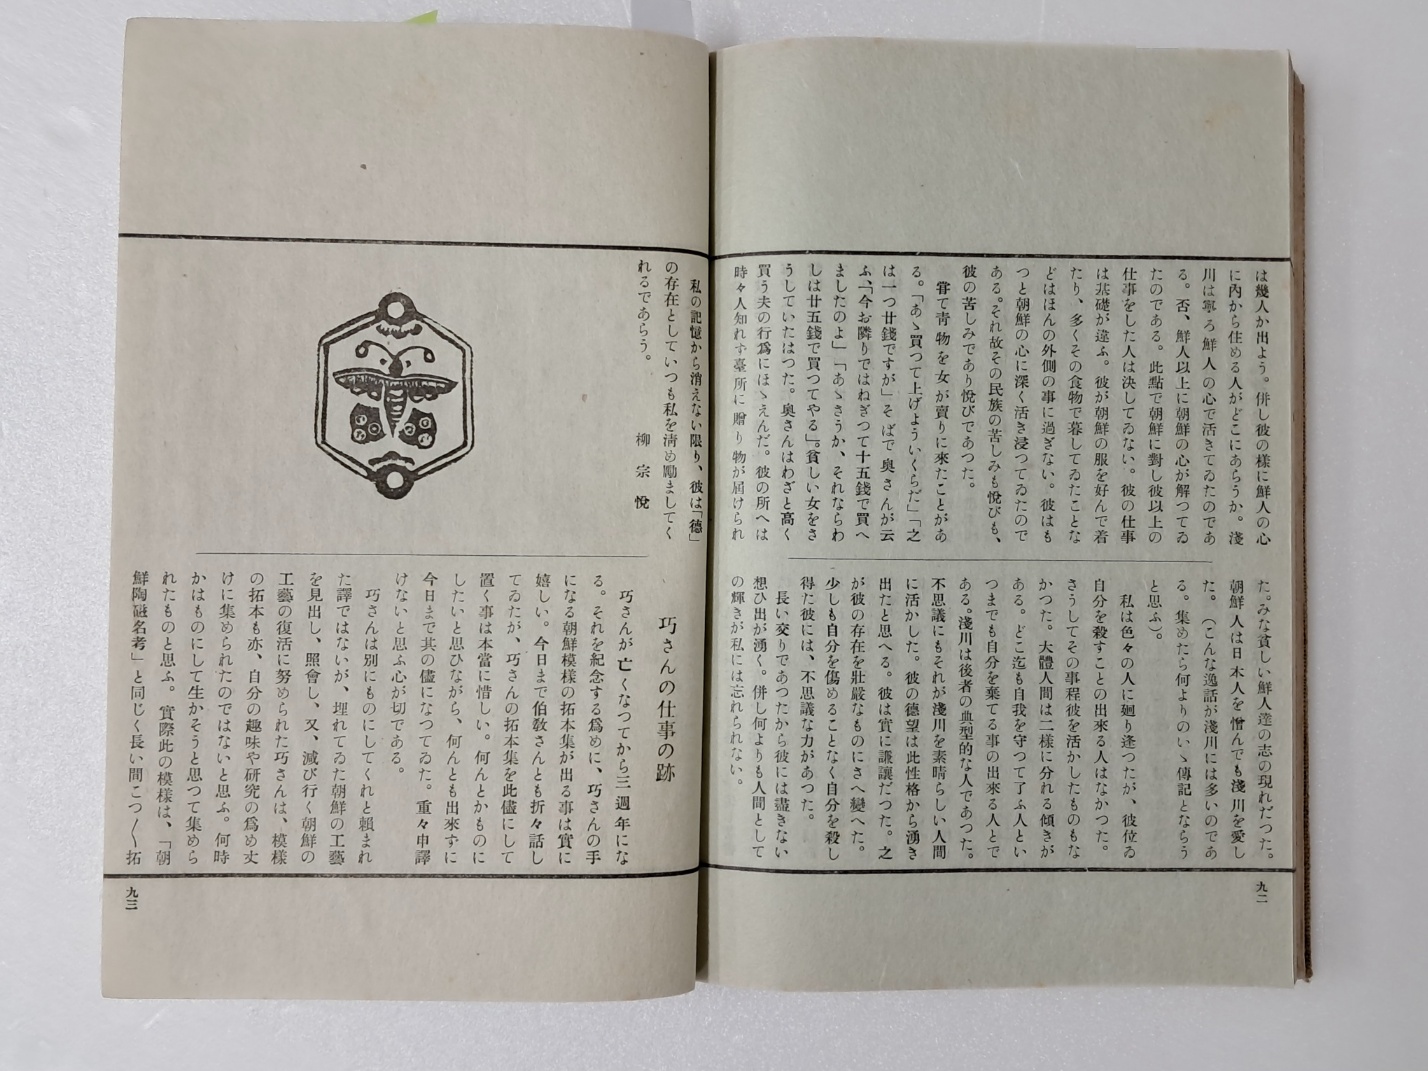 は幾人か出よう。併し彼の様に鮮人の心
に內から住める人がどこにあらうか。淺
川は寧ろ鮮人の心で活きてゐたのであ
る。否、鮮人以上に朝鮮の心が解つてゐ
たのである。此點で朝鮮に對し彼以上の
仕事をした人は決してゐない。彼の仕事
は基礎が違ふ。彼が朝鮮の服を好んで着
たり、多くその食物で暮してゐたことな
どはほんの外側の事に過ぎない。彼はも
つと朝鮮の心に深く活き浸つてゐたので
ある。それ故その民族の苦しみも悅びも、
彼の苦しみであり悅びであつた。
嘗て靑物を女が賣りに來たことがあ
る。「あゝ買つて上げよういくらだ」「之
は一つ廿錢ですが」そばで奥さんが云
ふ、「今お隣りではねぎつて十五錢で買へ
ましたのよ」「あゝさうか、それならわ
しは廿五錢で買つてやる」。貧しい女をさ
うしていたはつた。奥さんはわざと高く
買う夫の行爲にほゝえんだ。彼の所へは
時々人知れず臺所に贈り物が屆けられ
た。みな貧しい鮮人達の志の現れだつた。
朝鮮人は日本人を憎んでも淺川を愛し
た。（こんな逸話が淺川には多いのであ
る。集めたら何よりのいゝ傳記とならう
と思ふ）。
私は色々の人に廻り逢つたが、彼位ゐ
自分を殺すことの出來る人はなかつた。
さうしてその事程彼を活かしたものもな
かつた。大體人間は二樣に分れる傾きが
ある。どこ迄も自我を守つて了ふ人とい
つまでも自分を棄てる事の出來る人とで
ある。淺川は後者の典型的な人であつた。
不思議にもそれが淺川を素晴らしい人間
に活かした。彼の德望は此性格から湧き
出たと思へる。彼は實に謙讓だつた。之
が彼の存在を壯嚴なものにさへ變へた。
少しも自分を傷めることなく自分を殺し
得た彼には、不思議な力があつた。
長い交りであつたから彼には盡きない
想ひ出が湧く。併し何よりも人間として
の輝きが私には忘れられない。
九二
私の記憶から消えない限り、彼は「德」
の存在としていつも私を淸め勵ましてく
れるであらう。
柳宗悅
巧さんの仕事の跡
巧さんが亡くなつてから三週年にな
る。それを紀念する爲めに、巧さんの手
になる朝鮮模樣の拓本集が出る事は實に
嬉しい。今日まで伯敎さんとも折々話し
てゐたが、巧さんの拓本集を此儘にして
置く事は本當に惜しい。何んとかものに
したいと思ひながら、何んとも出來ずに
今日まで其の儘になつてゐた。重々申譯
けないと思ふ心が切である。
巧さんは別にものにしてくれと賴まれ
た譯ではないが、埋れてゐた朝鮮の工藝
を見出し、照會し、又、滅び行く朝鮮の
工藝の復活に努められた巧さんは、模樣
の拓本も亦、自分の趣味や硏究の爲め丈
けに集められたのではないと思ふ。何時
かはものにして生かそうと思つて集めら
れたものと思ふ。實際此の模樣は、「朝
鮮陶磁名考」と同じく長い間こつ〳〵拓
九三